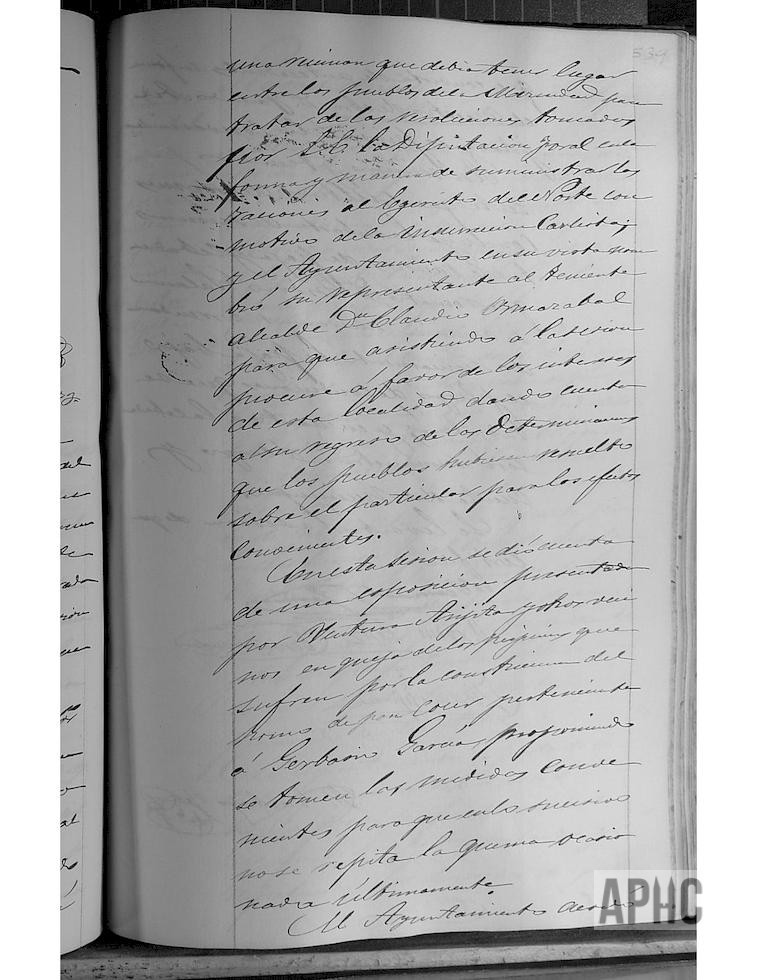 539
una reunion que debia tener lugar
entre los pueblos de la Merindad para
tratar de las resoluciones tomadas
por S.E. la Diputacion foral en la
forma y manera de suministrar las
raciones al Egercito del Norte con
motivo de la insurreccion Carlista;
y el Ayuntamiento en su vista nom
bró su representante al teniente
alcalde Dn Claudio Ormazabal
para que asistiendo á la sesion
procure á favor de los intereses
de esta localidad dando cuenta
a su regreso de las determinaciones
que los pueblos hubiesen resuelto
sobre el particular para los efectos
convenientes.
En esta sesion se dió cuenta
de una esposicion presentada
por Ventura Azpíta y otros veci
nos en queja de los perjuicios que
sufren por la construccion del
horno de pan cocer perteneciente
á Gerbasio García, proponiendo
se tomen las medidas conve
nientes para que en lo sucesivo
no se repita la quema ocasio
nada últimamente.
El Ayuntamiento acordó
APHC